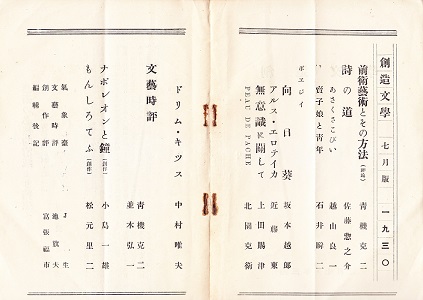 創造文學 七月版 一九三〇
前術藝術とその方法(評論) 青機克二
詩の道 佐藤惣之介
あさくさこびい 越山良一
賣子娘と靑年 石井舜二
ポエジイ
向日葵 坂本越郎
アルス・エロテイカ 近藤東
無意識に關して 上田敏雄
PEAU DE PACHE 北園克衛
ドリム・キツス 中村雅夫
文藝時評 靑機克二
並木弘一
ナポレオンと鐘(創作) 小島一雄
もんしろてふ(創作) 松元里二
氣象臺 J生
文藝時評
創作評
編輯後記 富張福市